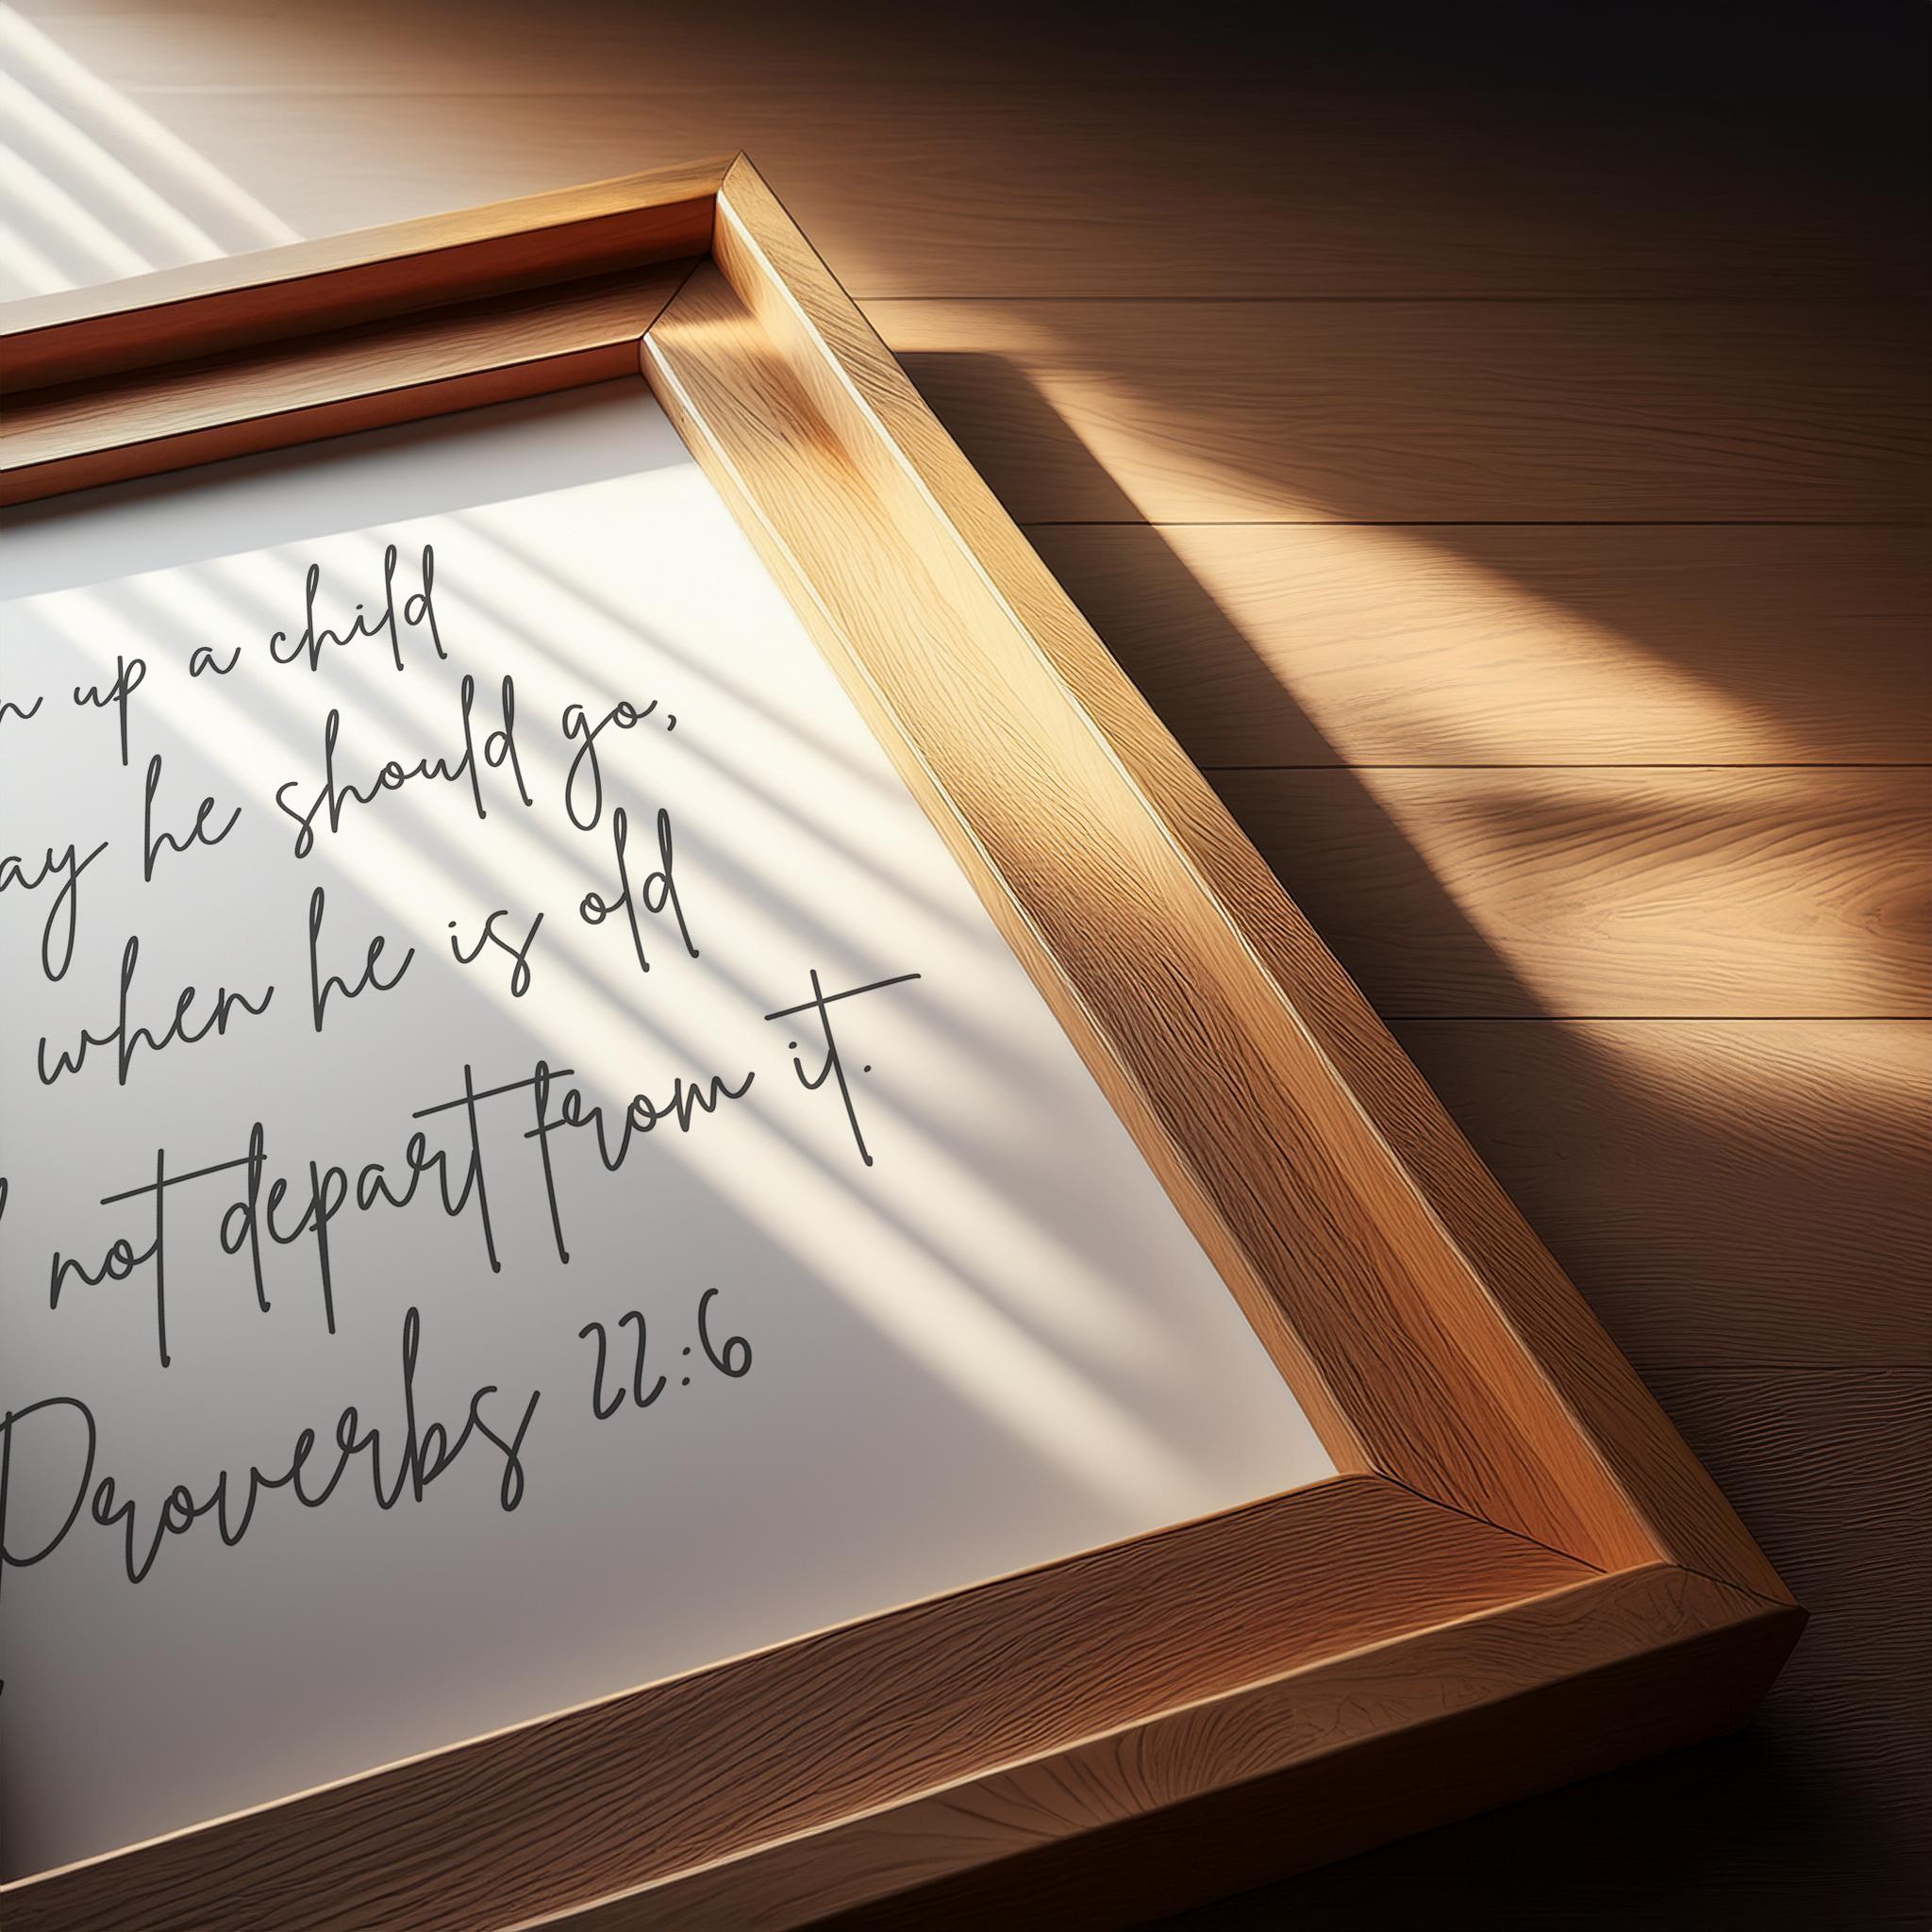 n up a child
ay he should go,
when he is old
not depart from it.
Proverbs 22:6